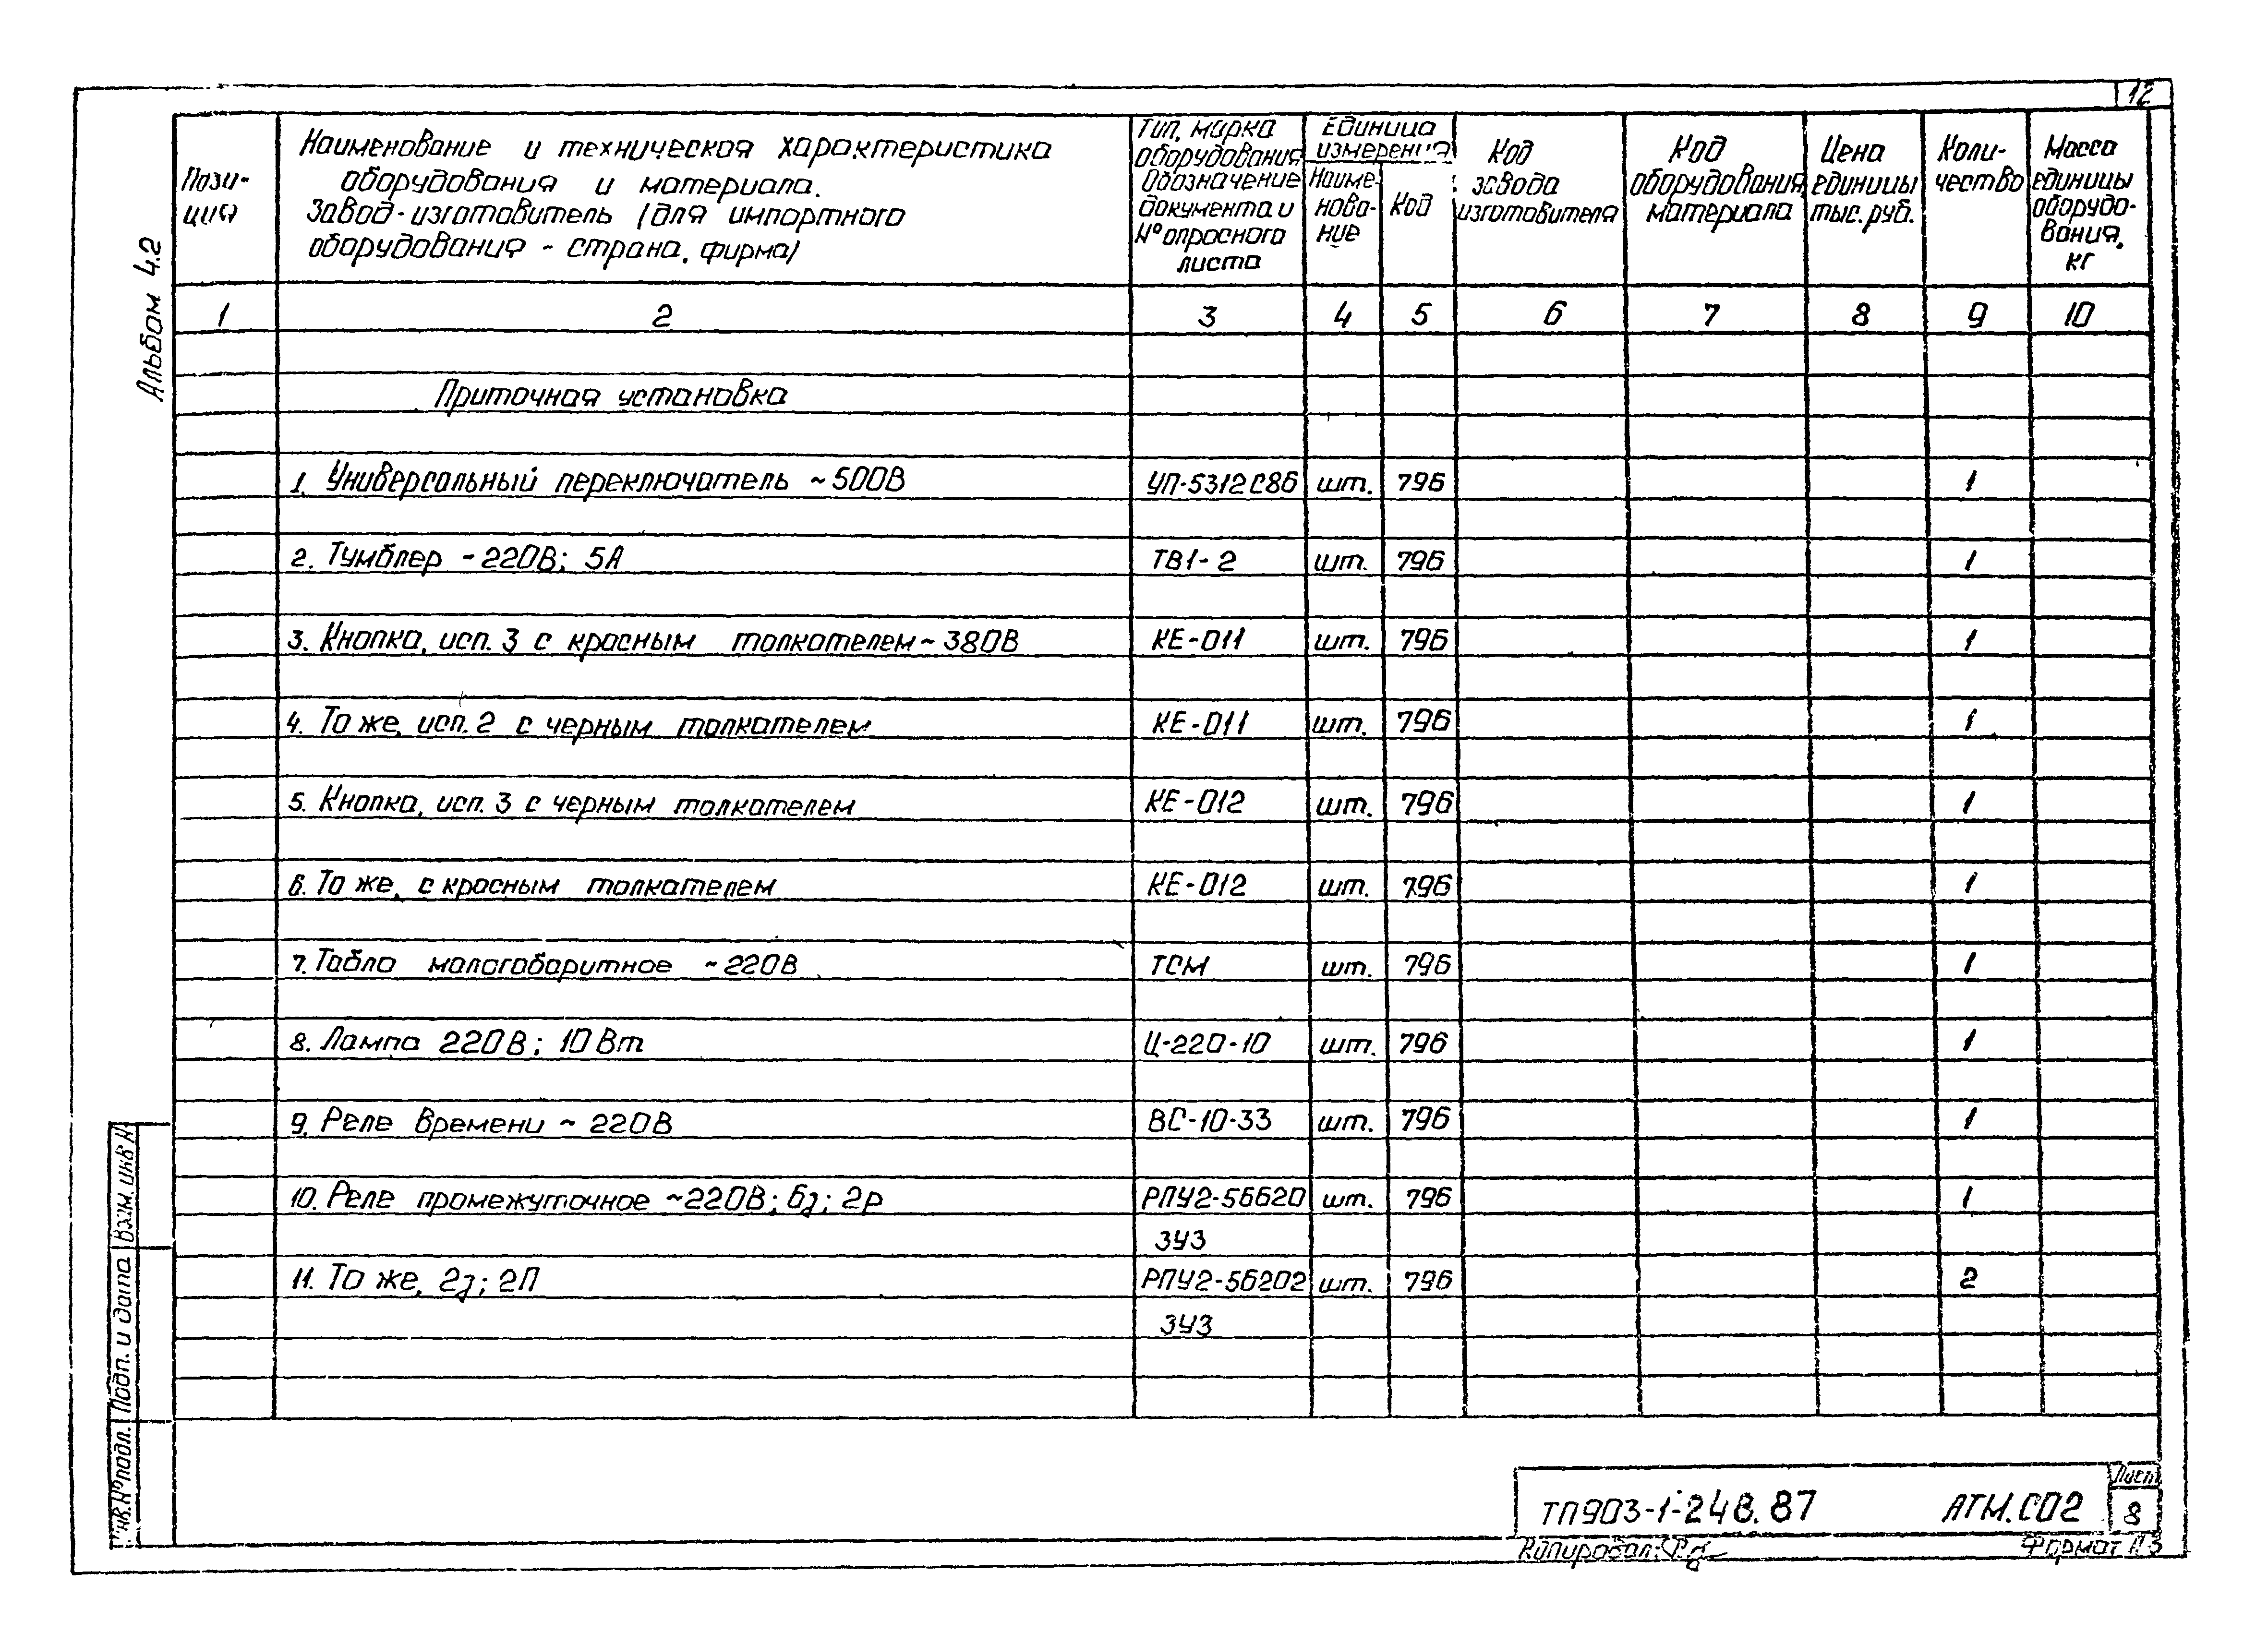 12
Альбом 4.2
Пози-
ция
Наименование и техническая характеристика
оборудования и материала.
Завод-изготовитель (для импортного
оборудования - страна, фирма)
Тип, марка
оборудования
Обозначение
документа и
N° опросного
листа
Единица
измерения
Наиме-
нова-
ние
Код
Код
завода
изготовителя
Код
оборудования,
материала
Цена
единицы
тыс. руб.
Коли-
чество
Масса
единицы
оборудо-
вания,
кг
1 2 3 4 5 6 7 8 9 10
Приточная установка
1. Универсальный переключатель ~500В УП-5312С86 шт. 796 1
2. Тумблер ~220В; 5А ТВ1-2 шт. 796 1
3. Кнопка, исп. 3 с красным толкателем ~380В КЕ-011 шт. 796 1
4. То же, исп. 2 с черным толкателем КЕ-011 шт. 796 1
5. Кнопка, исп. 3 с черным толкателем КЕ-012 шт. 796 1
6. То же, с красным толкателем КЕ-012 шт. 796 1
7. Табло малогабаритное ~220В ТСМ шт. 796 1
8. Лампа 220В; 10Вт Ц-220-10 шт. 796 1
9. Реле времени ~220В ВС-10-33 шт. 796 1
10. Реле промежуточное ~220В; 6з; 2р РПУ2-56620 шт. 796 1
3У3
11. То же, 2з; 2П РПУ2-56202 шт. 796 2
3У3
Взам. инв. N
Подп. и дата
Инв. N° подл.
ТП903-1-248.87 АТМ.СО2
Лист
8
Копировал:
Формат А3